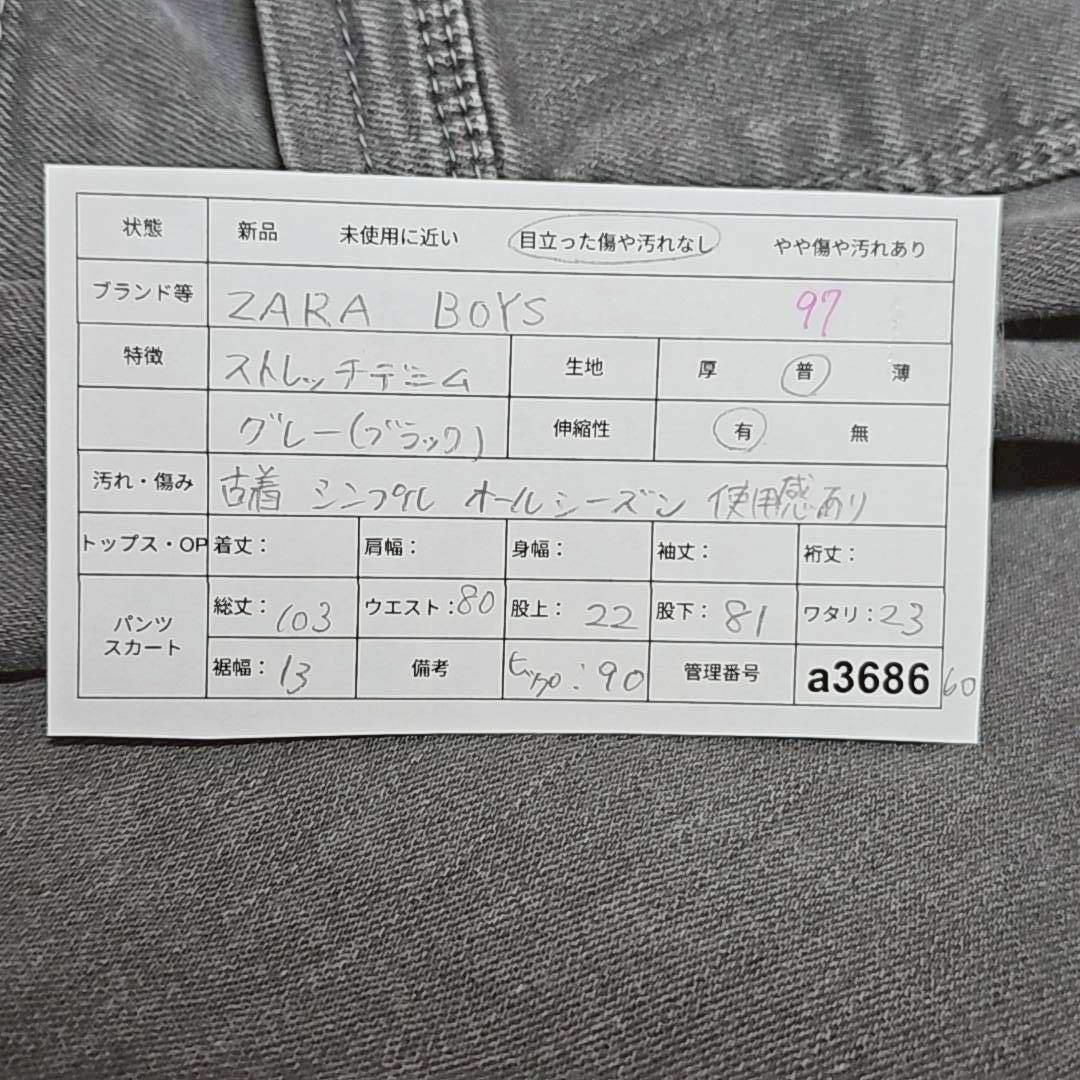 状態 新品 未使用に近い 目立った傷や汚れなし やや傷や汚れあり
ブランド等 ZARA BOYS 97
特徴 ストレッチデニム 生地 厚 普 薄
グレー(ブラック) 伸縮性 有 無
汚れ・傷み 古着 シンプル オールシーズン 使用感あり
トップス・OP 着丈: 肩幅: 身幅: 袖丈: 裄丈:
パンツ スカート 総丈: 103 ウエスト: 80 股上: 22 股下: 81 ワタリ: 23
裾幅: 13 備考 ヒップ: 90 管理番号 a3686 60